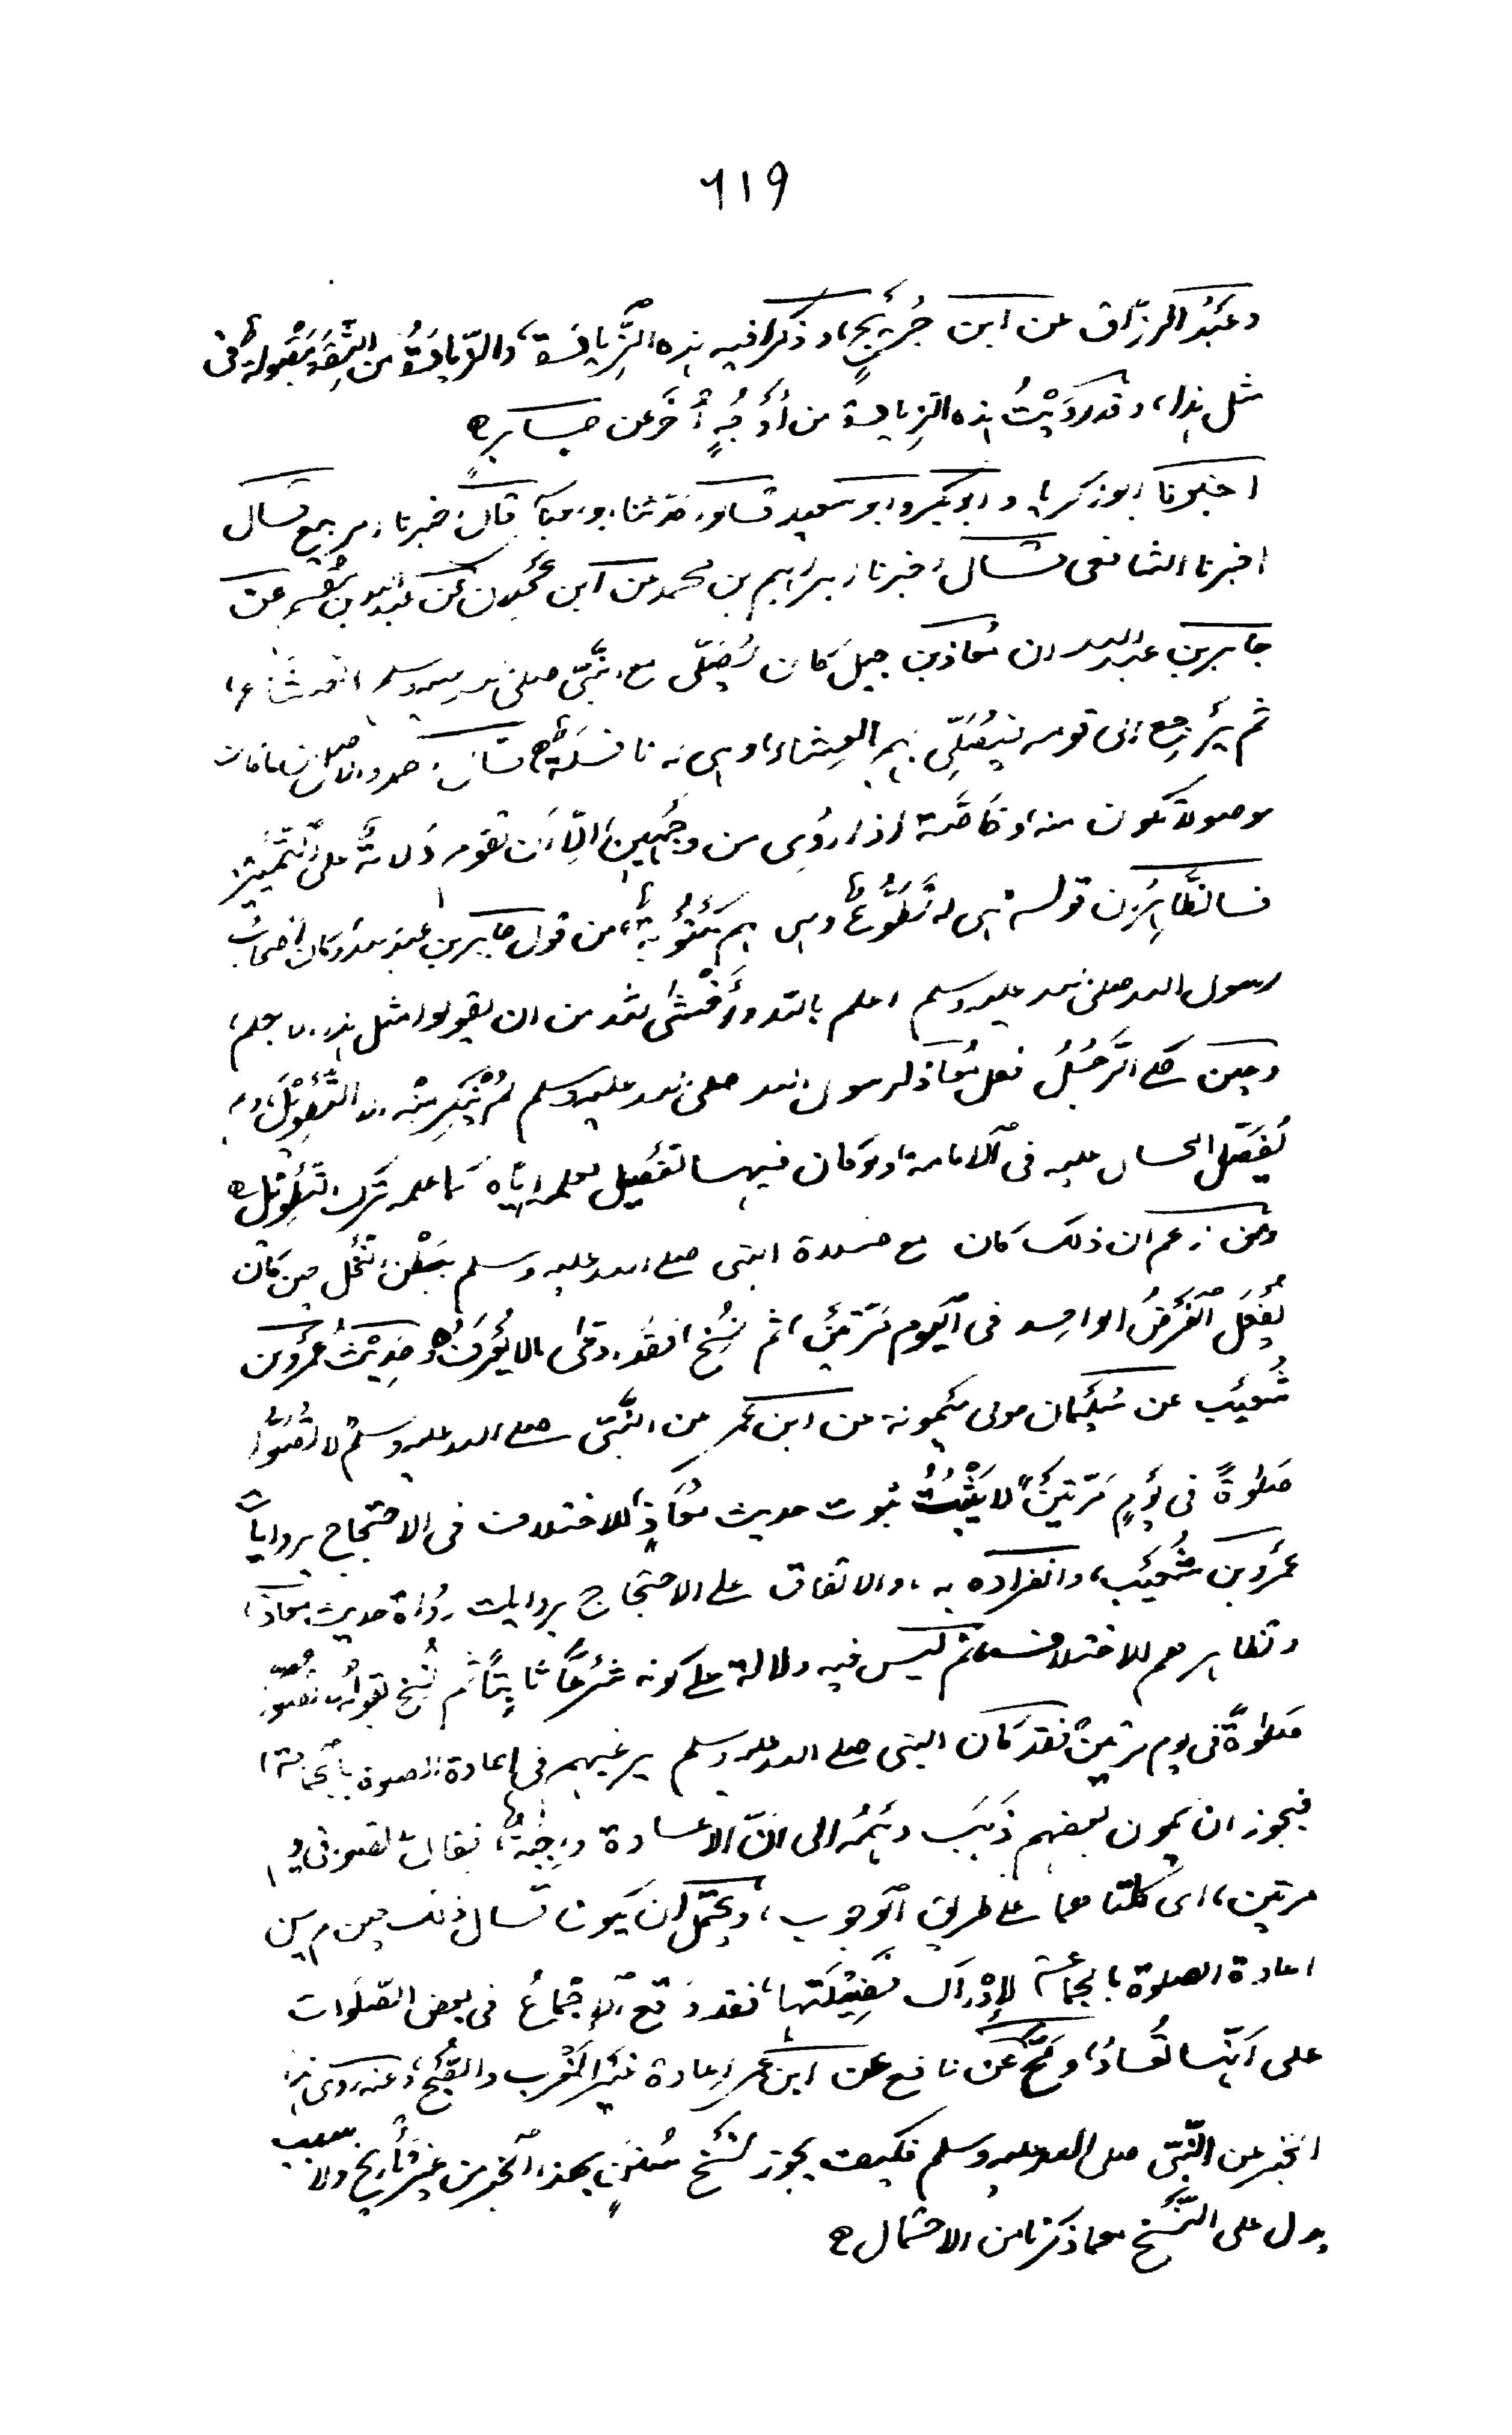 ٦١٩
وعَبْدُ الرزّاق عن ابن جُرَيْجٍ، وذكرا فيه هذه الزِّيادَة، والزّيادَةُ من الثِّقَةِ مَقْبولَةٌ فى
مثل هذا، وقد رُوِيَتْ هذه الزِّيادة من أوْجُهٍ أُخَر عن جابرٍ ه
اخبرنا ابو زكريا وابو بكر وابو سعيد قالوا حدّثنا ابو العباس قال اخبرنا الربيع قال
اخبرنا الشافعى قال اخبرنا ابراهيم بن محمد عن ابن عَجْلان عن عبيد الله بن مِقْسَم عن
جابر بن عبد الله ان مُعاذ بن جبل كان يُصَلّى مع النَّبىّ صلى الله عليه وسلم العِشَاء،
ثم يَرْجِع الى قومه فيُصَلِّى بهم العِشاء، وهى له نافِلَةٌ ه قال احمد والاصل ان ما كان
موصولا يكون منه، وخاصّة اذا رُوِى من وجْهَين، الّا ان تقوم دَلالةٌ على التَّمْيِيْز
فالظّاهِرُ ان قوله هى له تَطَوُّعٌ وهى لهم مَكْتُوْبةٌ، من قول جابر بن عبد الله، وكان اصْحابُ
رسول الله صلى الله عليه وسلم اعلم بالله وأخْشى لله من ان يقولوا مثل هذا الا بعلم،
وحين حكى الرَّجُلُ فعل مُعاذ لرسول الله صلى الله عليه وسلم لم يُنْكِر مِنْه الا التَّطْوِيْلَ، ولم
يُفَصّل الحال عليه فى الْامامة، ولو كان فيها تفصيل لعلمه إيّاه كما علمه ترك التَّطْوِيْل ه
ومن زعم ان ذلك كان مع صلوة النبى صلى الله عليه وسلم ببَطْن النَّخْل حين كان
يُفْعَل الْفَرْضُ الواحد فى الْيوم مَرّتَيْن، ثم نُسِخ، فقد ادّعى مالا يُعْرَفُ، وحَدِيْثُ عَمْرو بن
شُعَيْب عن سُلَيْمان مولى مَيْمونة عن ابن عُمر عن النَّبىّ صلى الله عليه وسلم لا تُصَلُّوا
صَلوٰةً فى يَومٍ مَرّتَيْن، لا يَثْبُتُ ثبوت حديث مُعاذٍ، للاختلاف فى الاحتجاج بروايات
عَمْرو بن شُعَيْب، وانفراده به، والاتفاق على الاحتجاج بروايات رُواة حديث معاذ،
وتظاهرهم للاختلاف، ثم ليس فيه دلالة على كونه شَرْعًا ثابِتًا ثم نُسِخ بقوله لا تُصَلّوا
صَلوٰةً فى يوم مرّتين، فقد كان النبى صلى الله عليه وسلم يرغبهم فى إعادة الصلوة بالْجماعة،
فيجوز ان يكون بعضهم ذَهَبَ وَهْمُه الى انّ الاعادة واجِبَةٌ، فقال لا تصلوا فى يوم
مرتين، اى كلتاهما على طريق الْوجوب، ويحتمل ان يكون قال ذلك حين لم يسن
اعادة الصلوة بالجماعة لإدْراك فَضِيْلَتها، فقد وَقَعَ الإجْماعُ فى بعض الصّلَوات
على اَنّها تُعادُ، وصَحَّ عن نافع عن ابن عمر إعادة غَيْر الْمَغْرب والصُّبْح، وعنه روى هذا
الخبر عن النَّبىّ صلى الله عليه وسلم فكيف يجوز نَسْخ سُنَنٍ بهذا الخبر من غَيْر تأريخ ولا سبب
يدل على النَّسْخ مع ما ذكرنا من الاحتمال ه